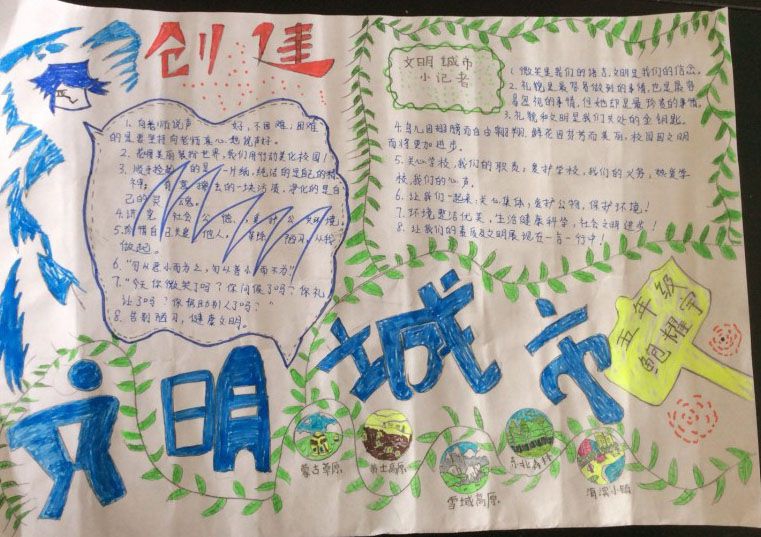 创建
1. 向老师说声 好,不困难,困难
的是要坚持向老师真心 想说声好。
2. 花儿美丽装扮世界,我们用行动美化校园!
3. 顺手捡起的是一片纸,纯洁的是自己的精
神; 去的一块污渍,净化的是自
己的灵魂。
4. 讲 社会公德, 爱护公
5. 珍惜自 关爱他人, 陋习,从我
做起。
6. “勿以恶小而为之,勿以善小而不为”
7. “今天你微笑了吗?你问候了吗?你礼
让了吗?你帮助别人了吗?”
8. 告别陋习,健康文明。
文明城市
小记者
1. 微笑是我们的语言,文明是我们的信念。
2. 礼貌是最容易做到的事情,也是最容
易忽视的事情,但她却是最珍贵的事情。
3. 礼貌和文明是我们共处的金钥匙。
4. 鸟儿因翅膀而自由翱翔,鲜花因芬芳而美丽,校园因文明
而将更加进步。
5. 关心学校,我们的职责;爱护学校,我们的义务;热爱学
校,我们的心声。
6. 让我们一起来:关心集体,爱护公物,保护环境!
7. 环境整洁优美,生活健康科学,社会文明进步!
8. 让我们的素质及文明展现在一言一行中!
文明城市
五年级
鲍耀宇
蒙古草原
黄土高原
雪域高原
东北森林
海滨小镇